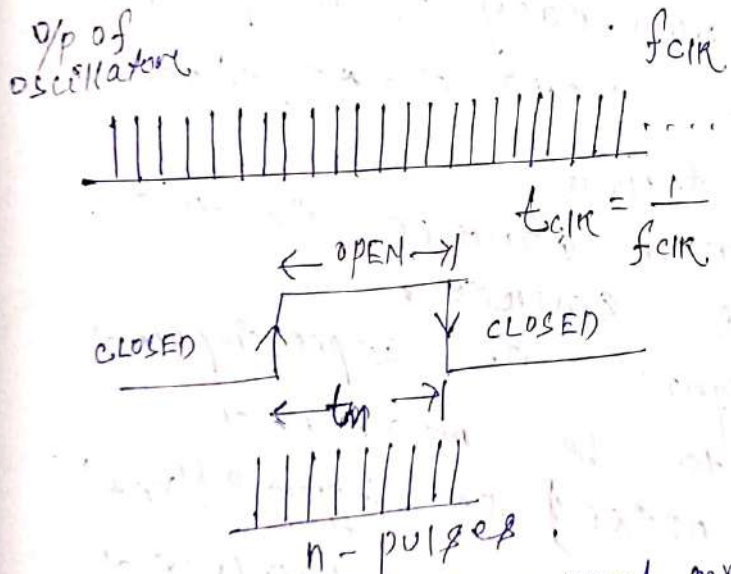 O/p of
oscillator
fclk
.....
tclk = 1/fclk
← OPEN →
CLOSED
CLOSED
← tm →
n - pulses.